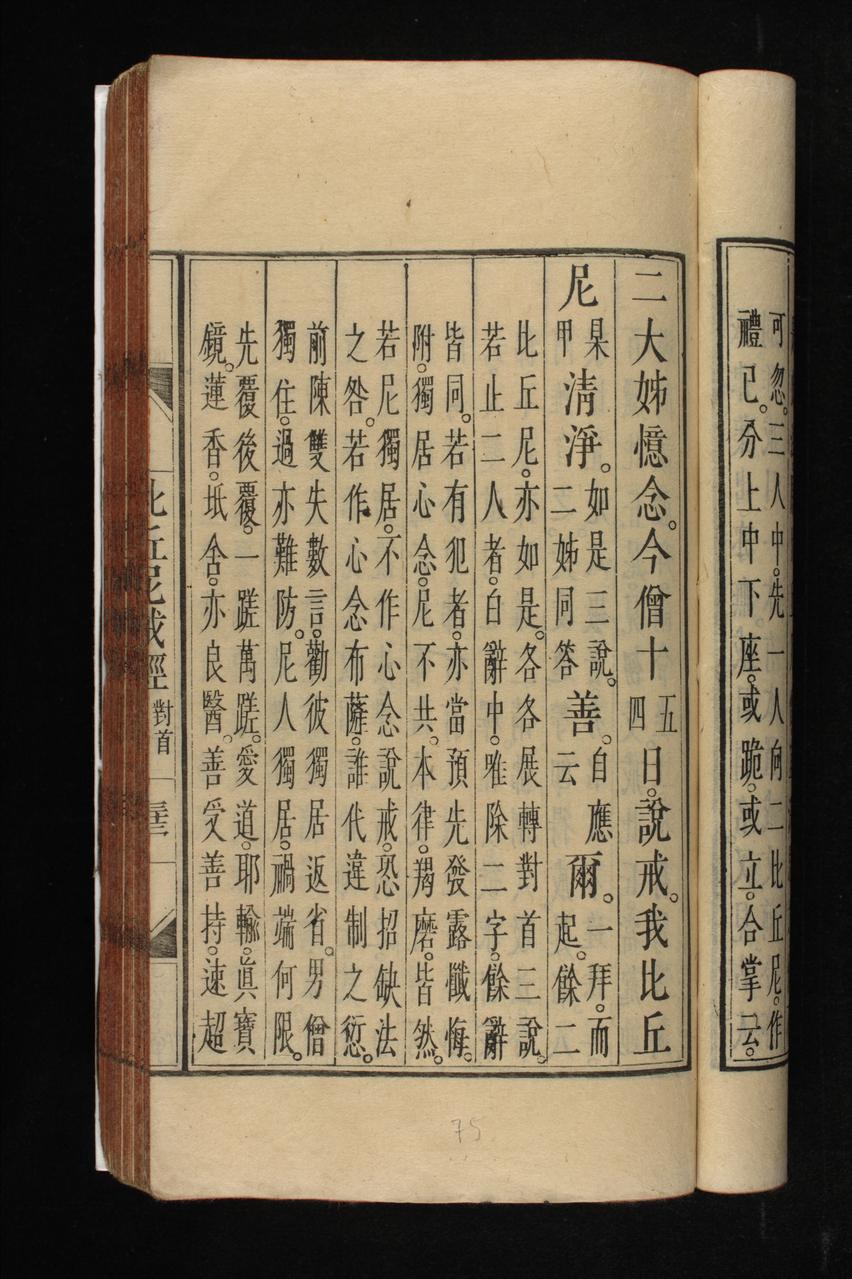 可忽。三人中。先一人向二比丘尼。作
禮已。分上中下座。或跪。或立。合掌云。
二大姊憶念。今僧十五四日。說戒。我比丘
尼某甲清淨。如是三說。二姊同答善。自應云爾。一拜。而起。餘二
比丘尼。亦如是。各各展轉對首三說。
若止二人者。白辭中。唯除二字。餘辭
皆同。若有犯者。亦當預先發露懺悔。
附。獨居心念。尼不共。本律。羯磨。皆然。
若尼獨居。不作心念說戒。恐招缺法
之咎。若作心念布薩。誰代違制之愆。
前陳雙失數言。勸彼獨居返省。男僧
獨住。過亦難防。尼人獨居。禍端何限。
先覆後覆。一蹉萬蹉。愛道。耶輸。眞寶
鏡。蓮香。坻舍。亦良醫。善受善持。速超
比丘尼戒經 對首
75